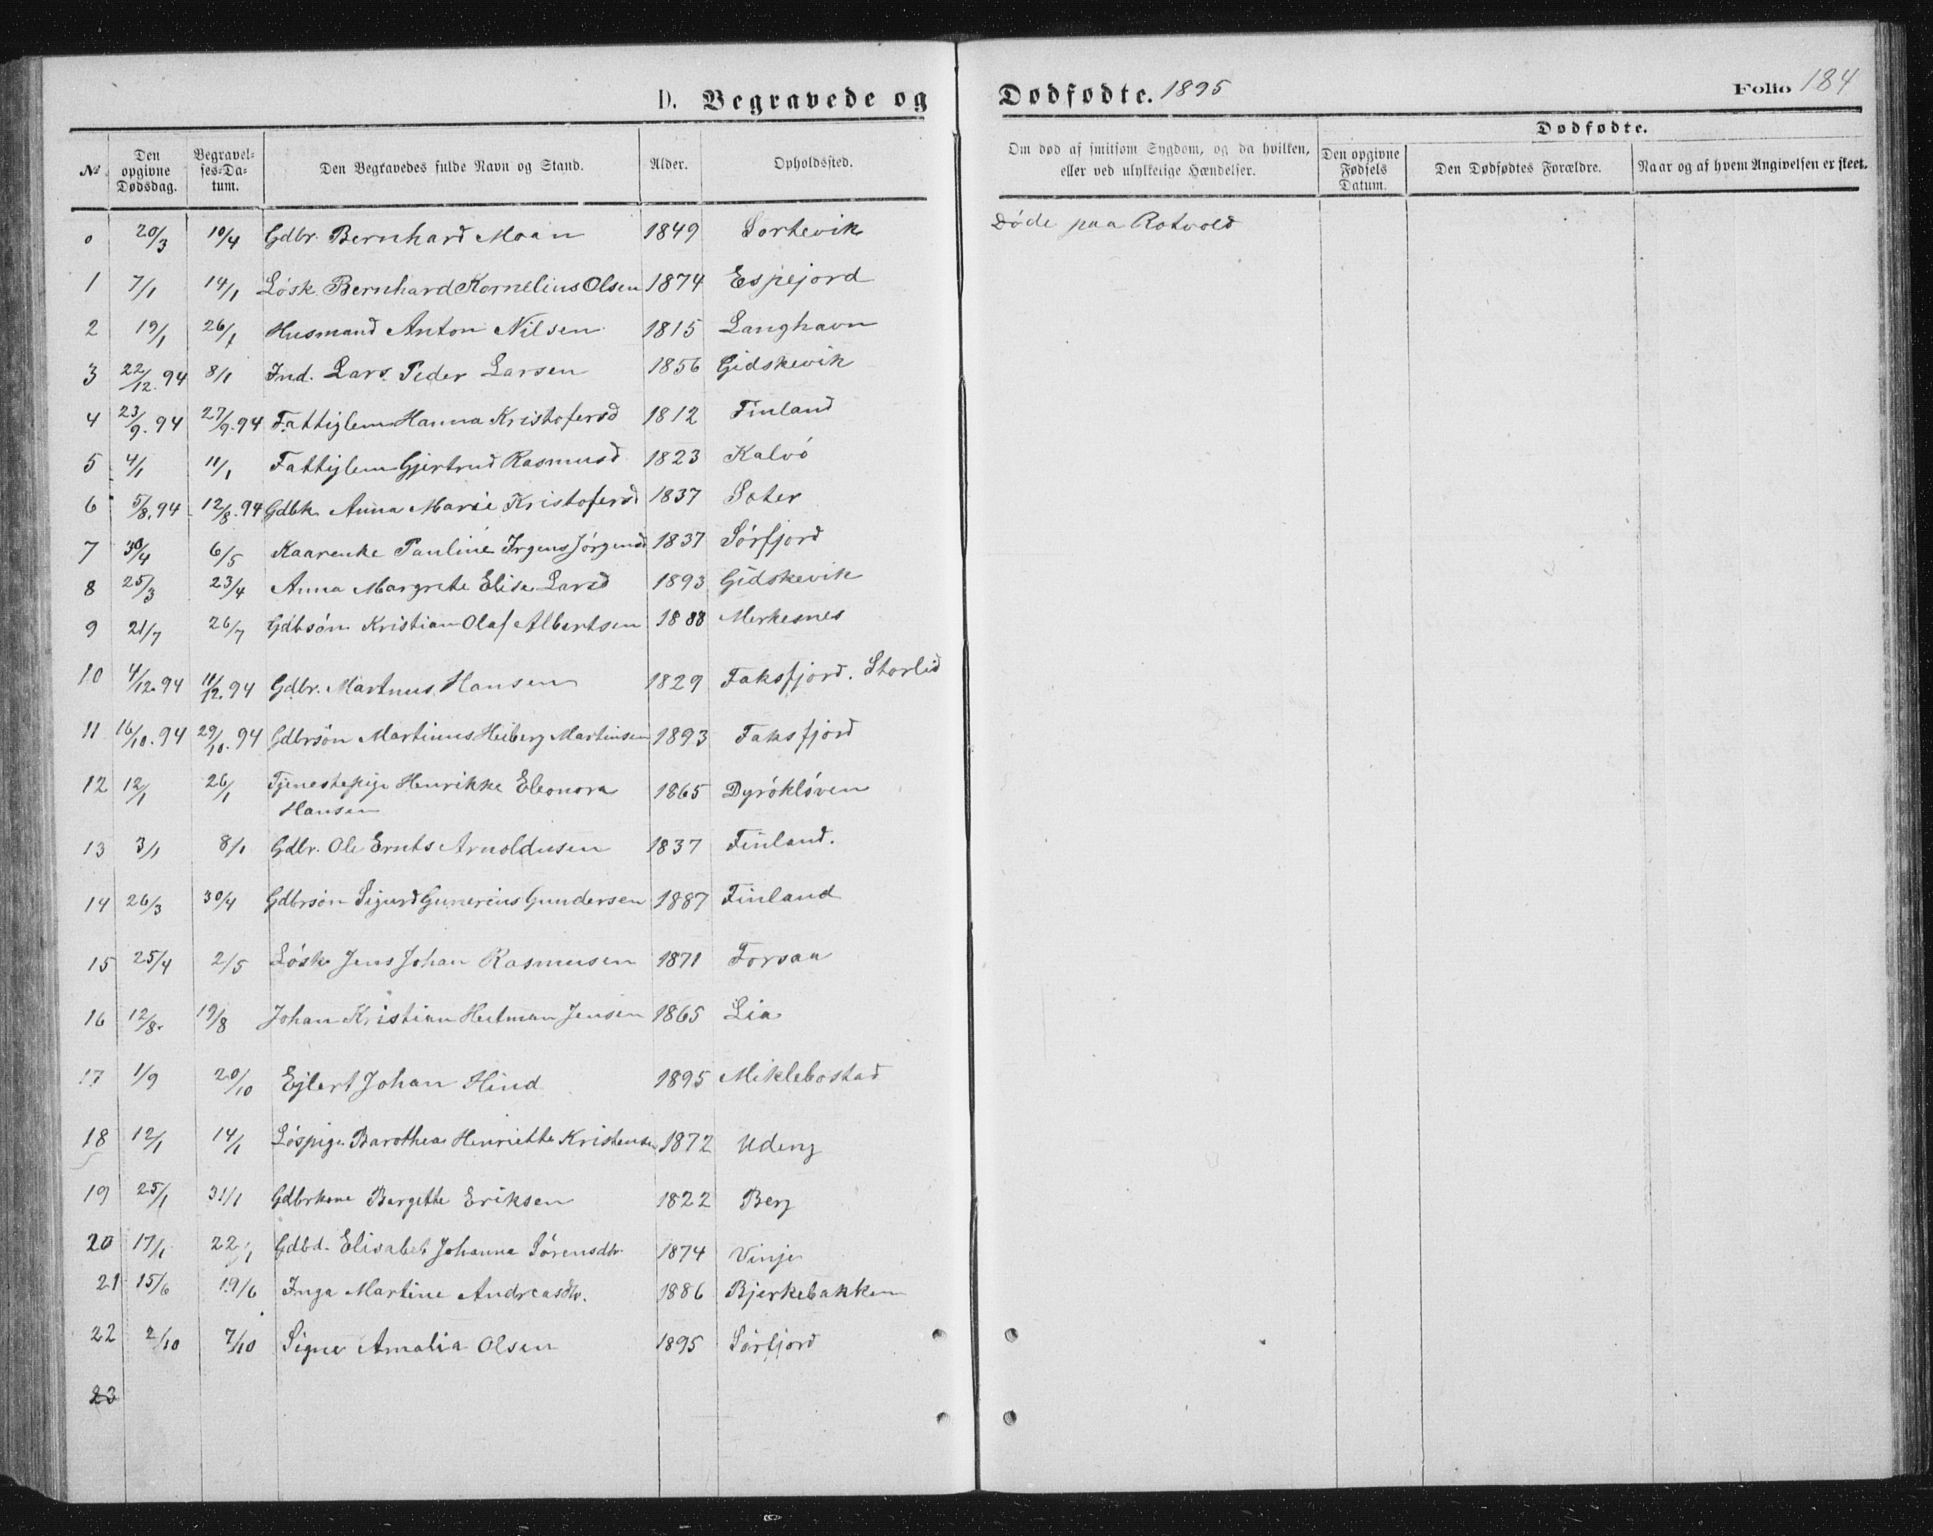 D. Begravede og Dødfødte. 1895 Folio 184
№ Den opgivne Dødsdag. Begravelses-Datum. Den Begravedes fulde Navn og Stand. Alder. Opholdssted. Om død af smitsom Sygdom, og da hvilken, eller ved ulykkelige Hændelser. Den opgivne Fødsels Datum. Dødfødte. Den Dødfødtes Forældre. Naar og af hvem Angivelsen er skeet.
0 20/3 10/4 Gdbr. Bernhard Moan 1849 Sortevik Døde paa Rotvold
1 7/1 14/1 Løsk. Bernhard Kornelius Olsen 1874 Espejord
2 19/1 26/1 Husmand Anton Nilsen 1815 Langhavn
3 22/12.94 8/1 Ind. Lars Peder Larsen 1856 Gidskevik
4 23/9.94 27/9.94 Fattiglem Hanna Kristofersd 1812 Finland
5 4/1 11/1 Fattiglem Gjertrud Rasmusd 1823 Kalvö
6 5/8.94 12/8.94 Gdbk. Anna Marie Kristofersd 1837 Sæter
7 30/4 6/5 Kaarenke Pauline Irgens Jørgensd 1837 Sørfjord
8 25/3 23/4 Anna Margrete Elise Larsd 1893 Gidskevik
9 21/7 26/7 Gdbsøn Kristian Olaf Albertsen 1888 Merkesnes
10 4/12.94 11/12.94 Gdbr. Martnus Hansen 1829 Faksfjord. Storlid
11 16/10.94 29/10.94 Gdbrsøn Martinus Heiberg Martinsen 1893 Faksfjord
12 12/1 26/1 Tjenestepige Henrikke Eleonora 1865 Dyrökløven
Hansen
13 3/1 8/1 Gdbr. Ole Ernts Arnoldusen 1837 Finland.
14 26/3 30/4 Gdbrsøn Sigurd Gunerius Gundersen 1887 Finland
15 25/4 2/5 Løsk. Jens Johan Rasmusen 1871 Forsaa
16 12/8. 19/8 Johan Kristian Heitman Jensen 1865 Lia
17 1/9 20/10 Ejlert Johan Hind 1895 Miklebostad
18 12/1 14/1 Løspige Barothea Henriette Kristensen 1872 Udeng
19 25/1 31/1 Gdbrkone Bergette Eriksen 1822 Berg
20 17/1 22/1 Gdbd. Elisabet Johanna Sørensdtr 1874 Vinje
21 15/6 19/6 Inga Martine Andreasdtr. 1886 Bjerkebakken
22 2/10 7/10 Signe Amalia Olsen 1895 Sørfjord
23